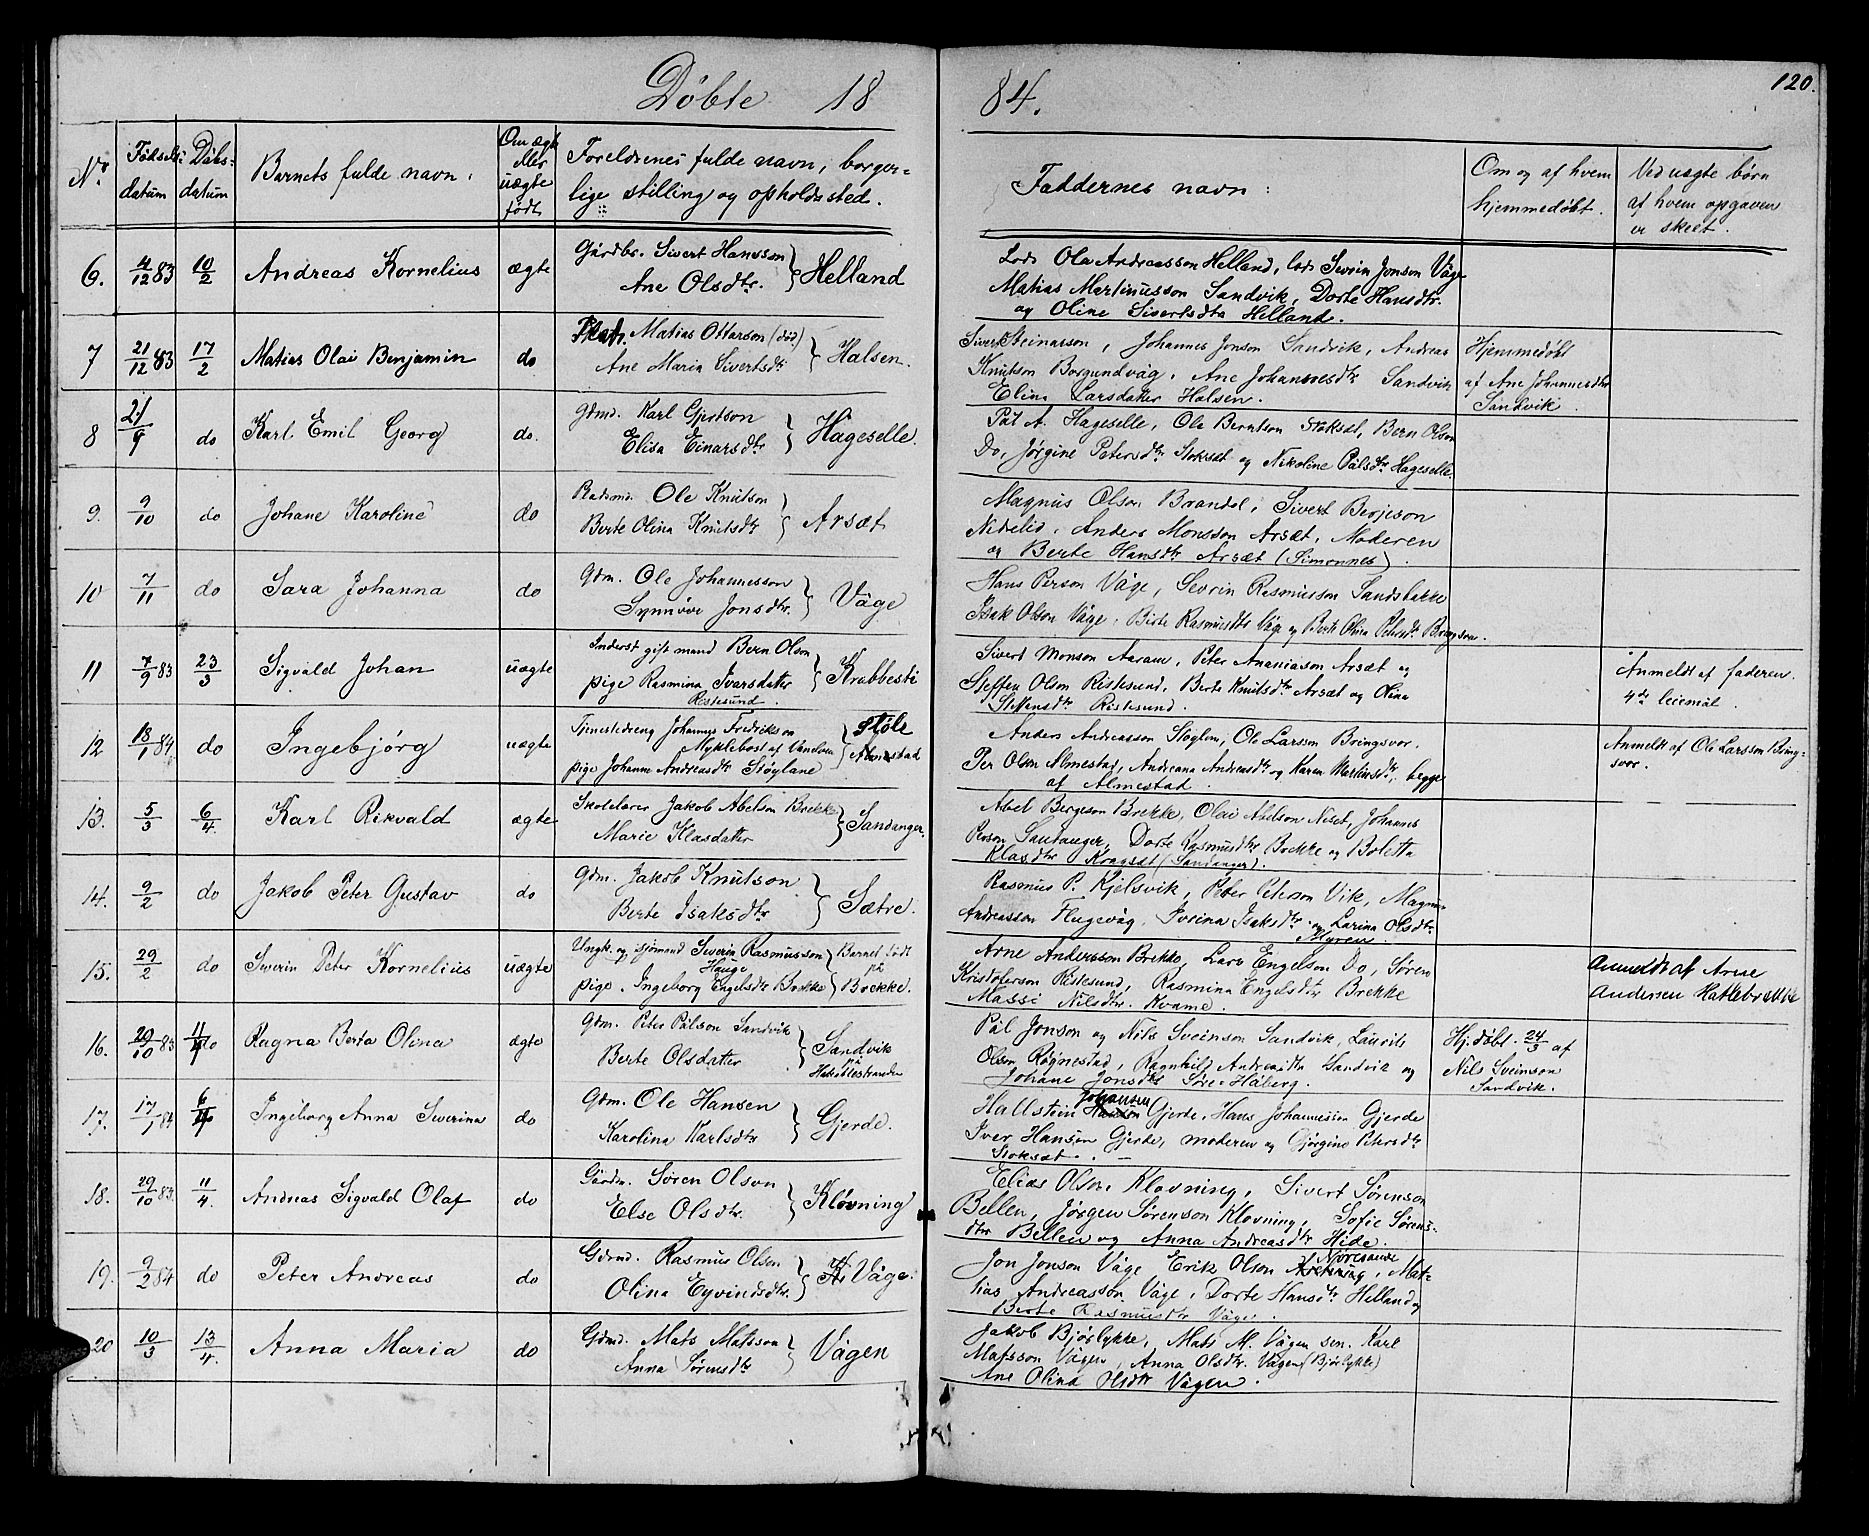 Döbte 18 84. 120.
No. Fødsels datum Dåbs-datum Barnets fulde navn. Om ægte eller uægte født Foreldrenes fulde navn, borger-
lige stilling og opholdssted. Faddernes navn: Om og af hvem hjemmedøbt. Ved uægte børn af hvem opgaven er skeet.
6. 4/12 83 10/2 Andreas Kornelius ægte Gårdbr. Sivert Hansson
Ane Olsdtr. } Helland
Lods Ola Andreasson Helland, lods Severin Jonson Våge
Matias Martinusson Sandvik, Dorte Hansdtr.
og Oline Sivertsdtr Helland.
7 21/12 83 17/2 Matias Olai Benjamin do Matias Ottarson (død)
Ane Maria Sivertsdtr } Halsen.
Siver Steinarson, Johannes Jonson Sandvik, Andreas
Knutson Borgundvåg, Ane Johannesdtr Sandvik
Elina Larsdatter Halsen.
Hjemmedøbt
af Ane Johannesdtr
Sandvik.
8 21/9 do Karl Emil Georg do. Gdmd. Karl Gjertson
Elisa Einarsdtr } Hågeselle.
Pål A. Hageselle, Ole Berntson Stoksæt, Bern Olson
Do, Jørgine Petersdtr Stoksæt og Nikoline Pålsdtr Hageselle.
9. 9/10 do Johane Karoline do Ole Knutson
Berte Olina Knutsdtr } Arsæt
Magnus Olson Brandal, Sivert Berjeson
Nedelid, Anders Monsson Arsæt, Moderen
og Berte Hansdtr Arsæt (Simonnes).
10 7/11 do Sara Johanna do Gdm. Ole Johannesson
Synnøve Jonsdtr. } Våge
Hans Person Våge, Severin Rasmusson Sandsbakke
Isak Olson Våge, Birte Rasmusdtr Våge og Berte Olina Petersdtr Bringsvor.
11 7/9 83 23/3 Sigvald Johan uægte Inderst gift mand Bern Olson
pige Rasmina Ivarsdatter
Ristesund. } Krabbesti
Sivert Monson Aaram, Peter Ananiason Arsæt og
Steffen Olson Ristesund, Berte Knutsdtr Arsæt og Olina
Steffensdtr Ristesund.
Anmeldt af faderen.
4de leiemål.
12 18/1 84 do Ingebjørg uægte Tjenestedreng Johannes Fredrikson
Myklebost af Vanelven
pige Johanne Andreasdtr Støylane } Støle
Almestad
Anders Andreasson Støylen, Ole Larsson Bringsvor,
Per Olson Almestad, Andreana Andreasdtr og Karen Martinsdtr, begge
af Almestad.
Anmeldt af Ole Larsson Bring-
svor.
13. 5/3 6/4 Karl Rikvald ægte Skolelærer Jakob Abelson Brekke
Marie Klasdatter } Sandanger.
Abel Bergeson Brekke, Olai Abelson Niset, Johannes
Person Sandanger, Dorte Rasmusdtr Brekke og Boletta
Klasdtr Kragset (Sandanger).
14. 9/2 do Jakob Peter Gustav do Gdm. Jakob Knutson
Berte Isaksdtr } Sætre.
Rasmus P. Kjelsvik, Peter Peterson Vik, Magnus
Andreasson Flugevåg, Iverina Isaksdtr og Larina Olsdtr
Myren.
15. 29/2 do Severin Peter Kornelius uægte Ungk. og sjømand Severin Rasmusson
Hauge
pige. Ingeborg Engelsdtr Brekke } Barnet født
på
Brekke.
Arne Andersson Brekke, Lars Engelson Do, Søren
Kristoferson Ristesund, Rasmina Engelsdtr Brekke
Massi Nilsdtr. Kvame.
Anmeldt af Arne
Andersen Hatlebrekke
16. 29/10 83 11/4 Ragna Berta Olina ægte Gdm. Peter Pålson Sandvik
Berte Olsdatter } Sandvik
på
Pål Jonson og Nils Sveinson Sandvik, Laurits
Olsen Røgnestad, Ragnhild Andreasdtr Sandvik og
Johane Jonsdtr Søre Håberg.
Hj. døbt 24/3 af
Nils Sveinson
Sandvik.
17. 17/1 84 6/4 Ingeborg Anna Severina do Gdm. Ole Hansen
Karolina Karlsdtr } Gjerde.
Hallstein Johansen Gjerde, Hans Johannessen Gjerde
Iver Hanson Gjerde, moderen og Gjørgine Petersdtr
Stoksæt.
18. 29/10 83 11/4. Andreas Sigvald Olaf do Gårdm. Søren Olson
Else Olsdtr. } Kløvning
Elias Olson Klovning, Sivert Sørenson
Bellen, Jørgen Sørenson Klovning, Sofie Sørens-
dtr Bellen og Anna Andreasdtr Hide.
19. 9/2 84 do Peter Andreas do Gdmd. Rasmus Olson
Olina Eyvindsdtr. } Våge.
Jon Jonson Våge Erik Olson Nøresande, Mat-
tias Andreasson Våge, Dorte Hansdtr Helland og
Berte Rasmusdtr Våge.
20 10/3 13/4. Anna Maria do Gdmd. Mats Matsson
Anna Sørensdtr } Vågen
Jakob Bjørlykke, Mats M. Vågen sen. Karl
Matsson Vågen, Anna Olsdtr. Vågen (Bjørlykke)
Ane Olina Olsdtr Vågen.